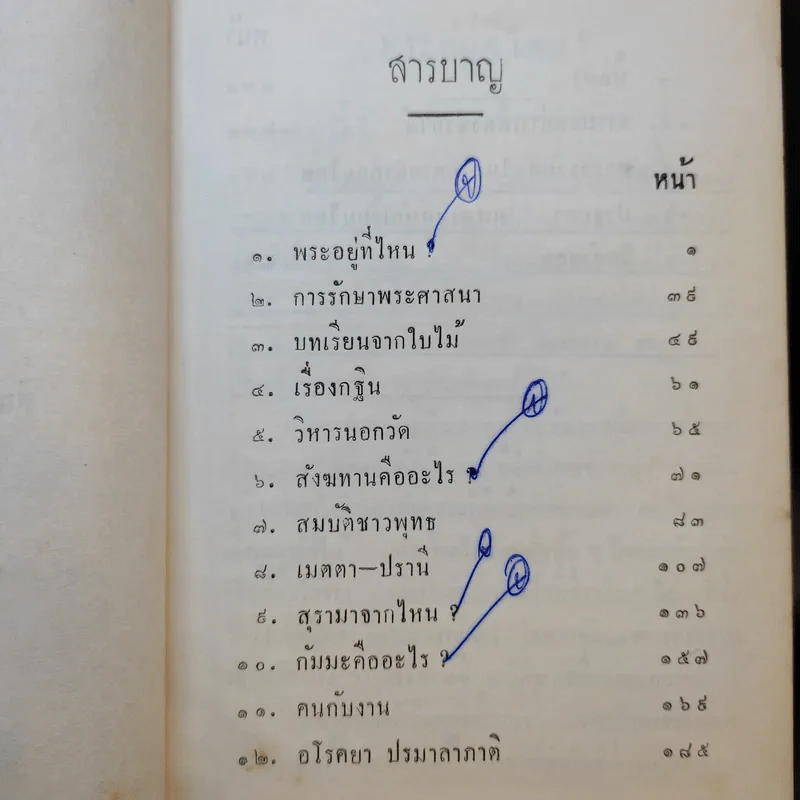 สารบาญ
หน้า
๑. พระอยู่ที่ไหน ? ๑
๒. การรักษาพระศาสนา ๓๙
๓. บทเรียนจากใบไม้ ๔๙
๔. เรื่องกฐิน ๖๑
๕. วิหารนอกวัด ๖๕
๖. สังฆทานคืออะไร ? ๗๑
๗. สมบัติชาวพุทธ ๘๓
๘. เมตตา—ปรานี ๑๐๗
๙. สุรามาจากไหน ? ๑๓๖
๑๐. กัมมะคืออะไร ? ๑๕๗
๑๑. คนกับงาน ๑๖๙
๑๒. อโรคยา ปรมาลาภาติ ๑๘๕